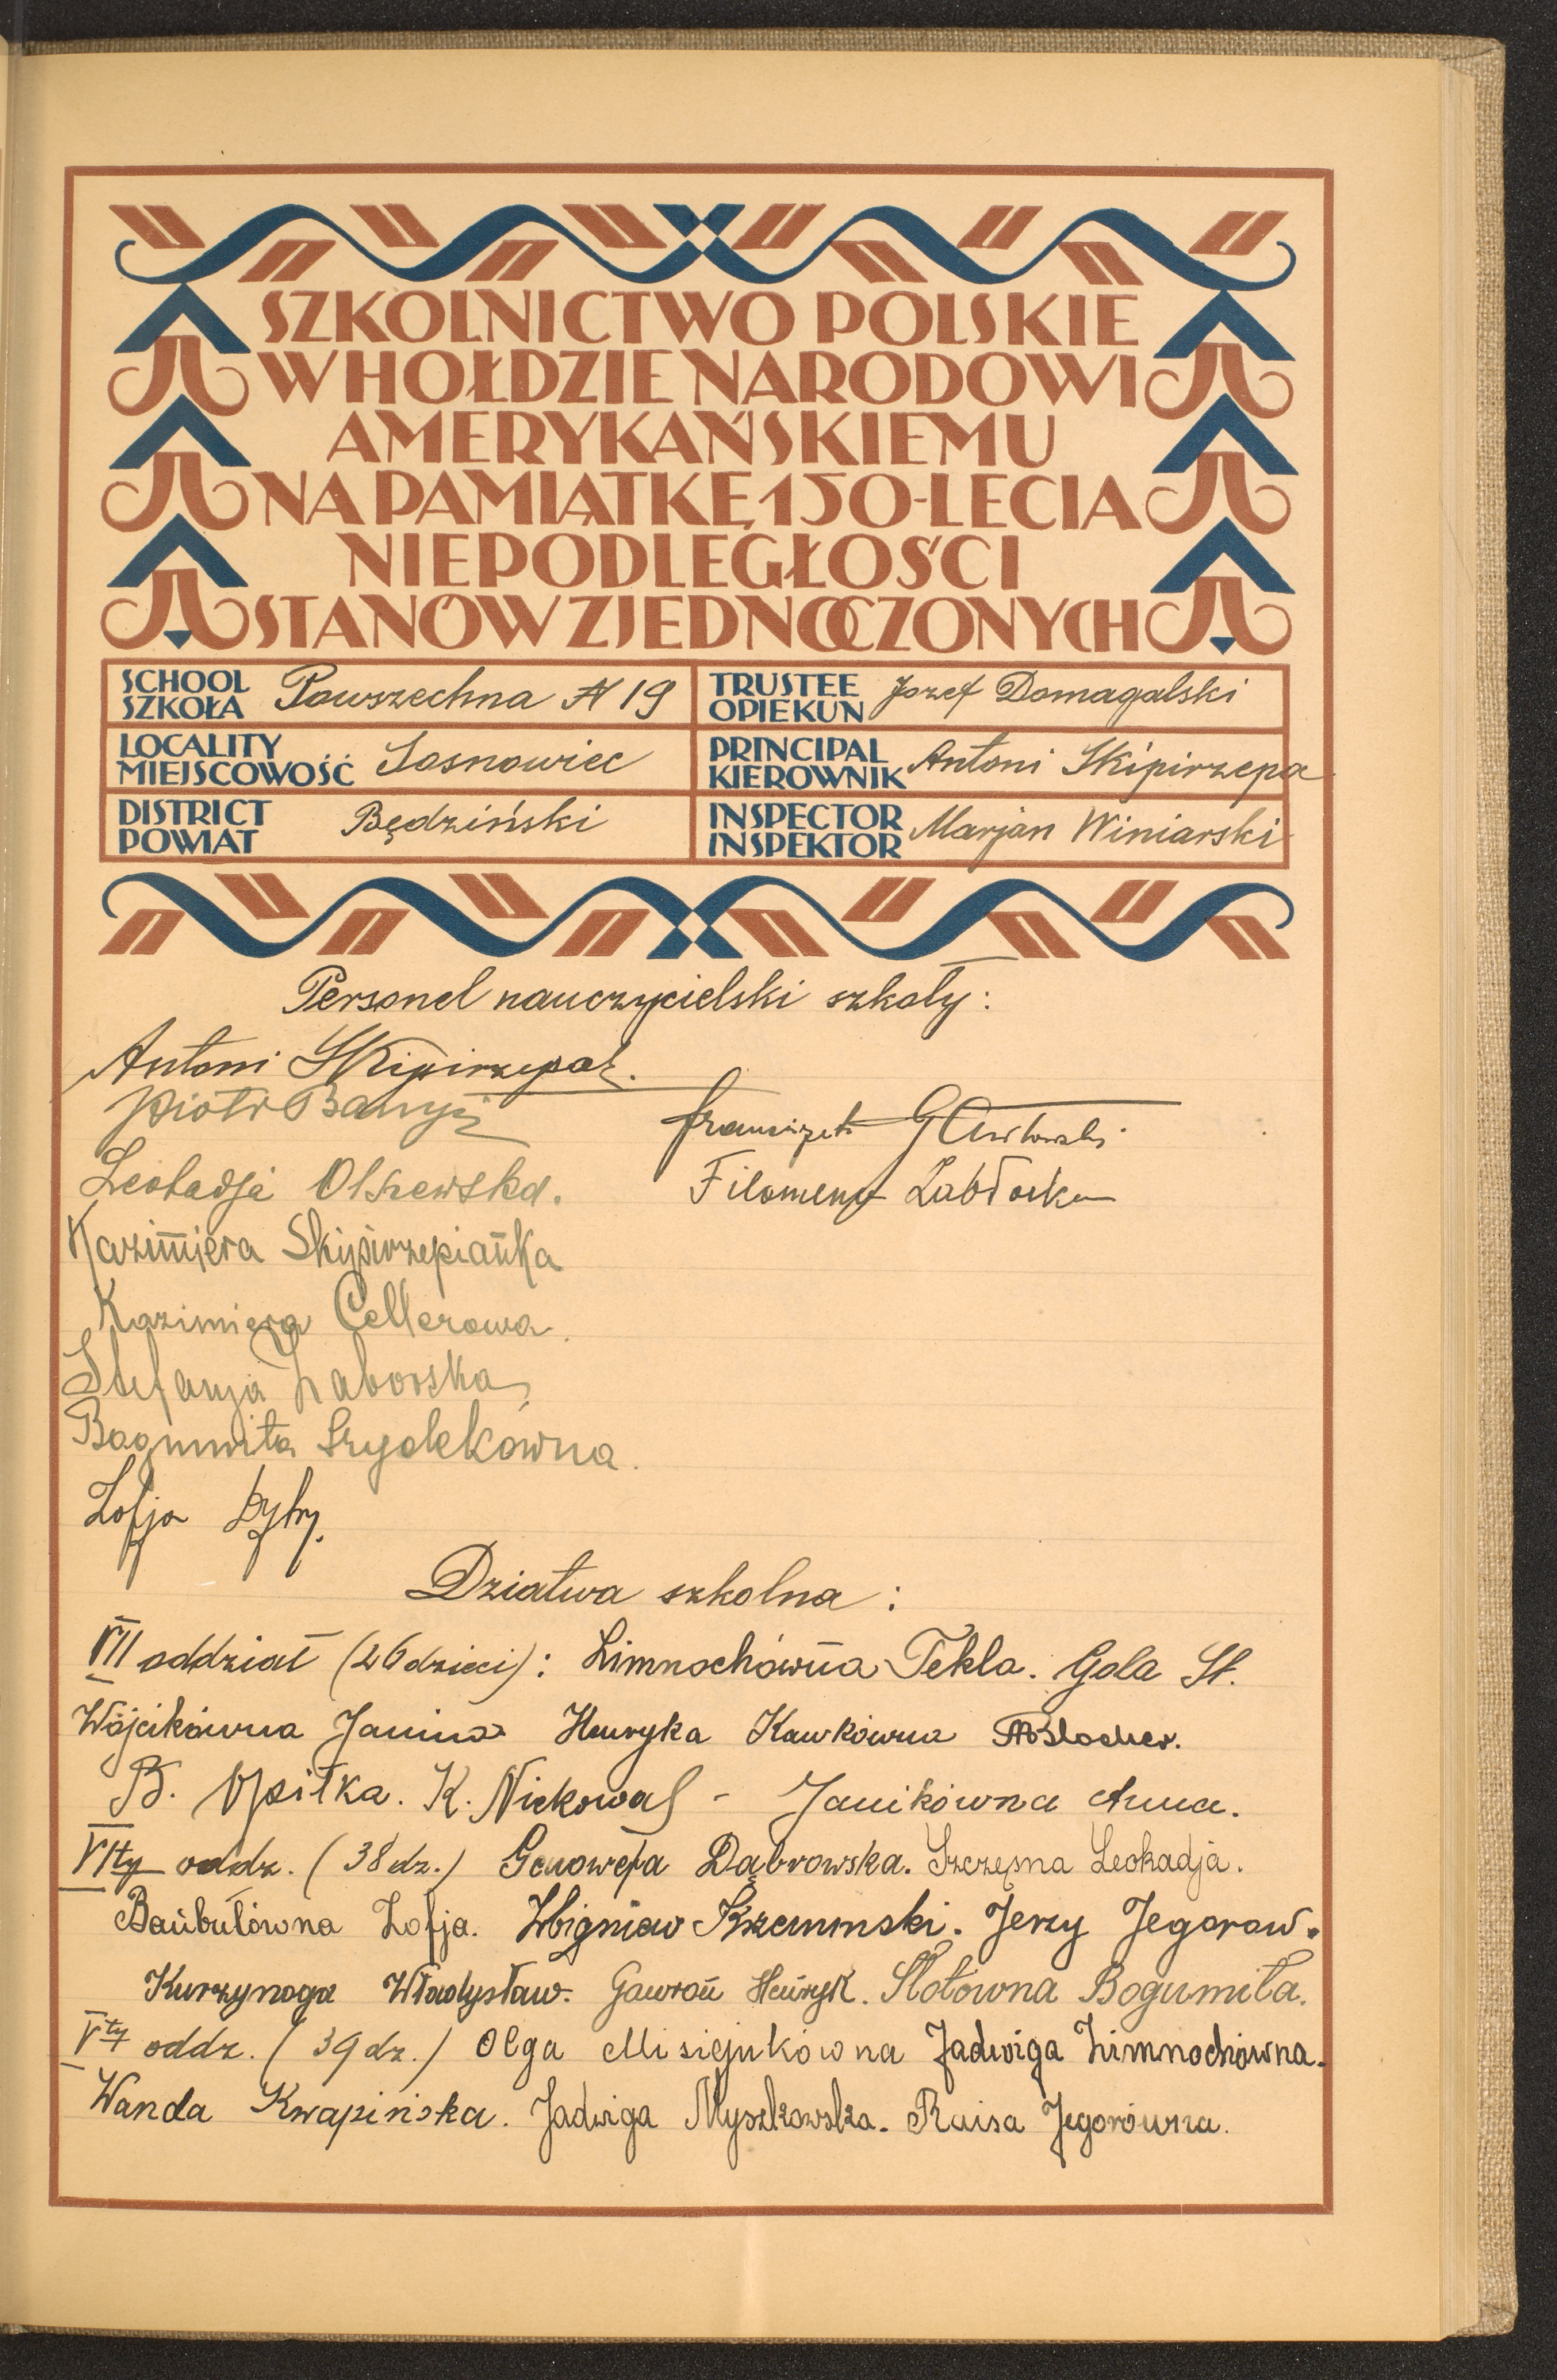 SZKOLNICTWO POLSKIE
W HOŁDZIE NARODOWI
AMERYKAŃSKIEMU
NA PAMIĄTKĘ 150-LECIA
NIEPODLEGŁOŚCI
STANÓW ZJEDNOCZONYCH
SCHOOL SZKOŁA Powszechna N 19
TRUSTEE OPIEKUN Jozef Domagalski
LOCALITY MIEJSCOWOŚĆ Sosnowiec
PRINCIPAL KIEROWNIK Antoni Skipirzepa
DISTRICT POWIAT Będziński
INSPECTOR INSPEKTOR Marjan Winiarski
Personel nauczycielski szkoły:
Antoni Skipirzepa
Piotr
Franciszek
Leokadja Olszewska.
Filomena Zabłocka
Kazimiera Skipirzepianka
Kazimiera Cellerowa.
Stefanja Zaborska
Bogumiła Szydekówna.
Zofja
Dziatwa szkolna:
VII oddział (26 dzieci): Zimnochówna Tekla. Gola St.
Wójcikówna Janina Henryka Kawkówna
B. Opiłka. K. Niekowal - Janikówna Anna.
VIty oddz. (38 dz.) Genowefa Dąbrowska. Szczęsna Leokadja.
Banbułówna Zofja. Zbigniew Krzemiński. Jerzy Jegorow.
Kurzynoga Władysław. Gawron Henryk. Słotówna Bogumiła.
Vty oddz. (39 dz.) Olga Misiejukówna Jadwiga Zimnochówna.
Wanda Kwapińska. Jadwiga Myszkowska. Raisa Jegorówna.